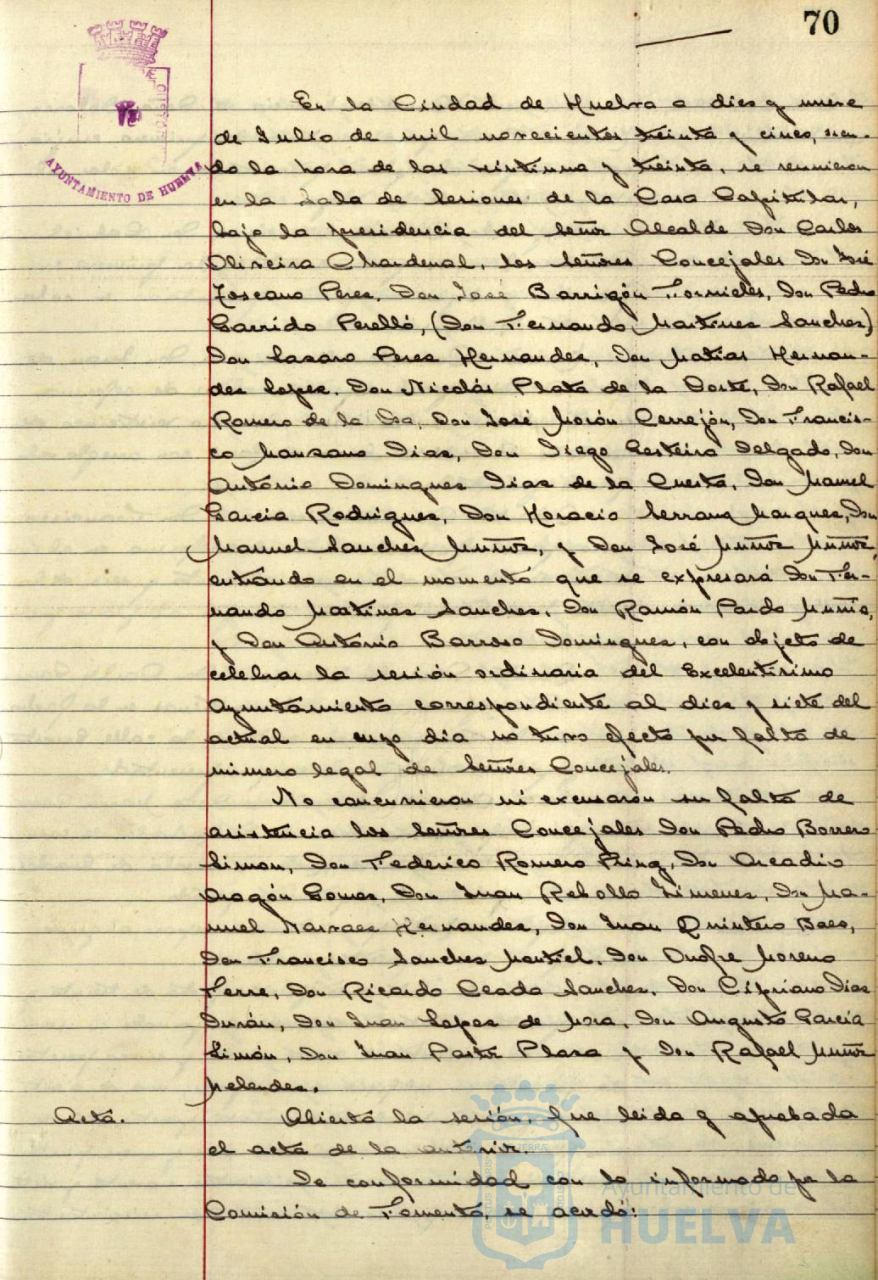 70
AYUNTAMIENTO DE HUELVA
En la Ciudad de Huelva a dies y nueve
de Julio de mil novecientos treinta y cinco, sien-
do la hora de las veintiuna y treinta, se reunieron
en la Sala de Sesiones de la Casa Capitular,
bajo la presidencia del Señor Alcalde Don Carlos
Oliveira Chardenal, los Señores Concejales Don José
Toscano Peres, Don José Barrigón Fornieles, Don Pedro
Garrido Perelló, (Don Fernando Martines Sanches)
Don Lasaro Peres Hernandes, Don Matias Hernan-
des Lopes, Don Nicolás Plata de la Corte, Don Rafael
Romero de la Osa, Don José Morón Cerrejón, Don Francis-
co Mansano Dias, Don Diego Gesteiro Delgado, Don
António Domingues Dias de la Cuesta, Don Manuel
Garcia Rodrigues, Don Horacio Serrano Marques, Don
Manuel Sanches Muñoz, y Don José Muñoz Muñoz,
entrando en el momento que se expresará Don Fer-
nando Martines Sanches, Don Ramón Pardo Muñiz,
y Don António Barroso Domingues, con objeto de
celebrar la sesión ordinaria del Excelentísimo
Ayuntamiento correspondiente al dies y siete del
actual en cuyo dia no tuvo efecto por falta de
número legal de Señores Concejales.
No concurrieron ni excusarón su falta de
asistencia los Señores Concejales Don Pedro Borrero
Limon, Don Federico Romero Pring, Don Arcadio
Aragón Gomes, Don Juan Rebollo Jimenes, Don Ma-
nuel Narvaes Hernandes, Don Juan Quintero Baes,
Don Francisco Sanches Montiel, Don Onofre Moreno
Ferre, Don Ricardo Ceada Sanches, Don Cipriano Dias
Durán, Don Juan Lopes de Mora, Don Augusto García
Limón, Don Juan Plasa y Don Rafael Muñoz
Melendes.
Acta. Abierta la sesión, fue leida y aprobada
el acta de la anterior.
De conformidad con lo informado por la
Comisión de Fomento, se acordó:
Ayuntamiento de
HUELVA